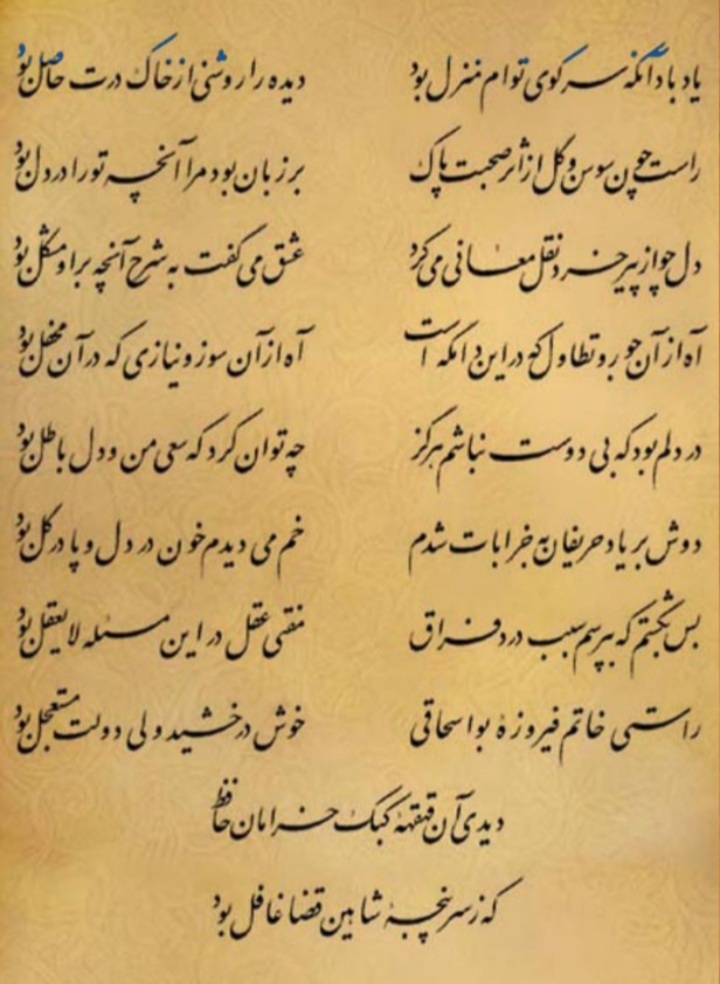 یاد باد آنکه سر کوی توام منزل بود دیده را روشنی از خاک درت حاصل بود
راست چون سوسن و گل از اثر صحبت پاک بر زبان بود مرا آنچه تو را در دل بود
دل چو از پیر خرد نقل معانی می‌کرد عشق می‌گفت به شرح آنچه بر او مشکل بود
آه از آن جور و تطاول که در این دامگه است آه از آن سوز و نیازی که در آن محفل بود
در دلم بود که بی دوست نباشم هرگز چه توان کرد که سعی من و دل باطل بود
دوش بر یاد حریفان به خرابات شدم خم می دیدم خون در دل و پا در گل بود
بس بگشتم که بپرسم سبب درد فراق مفتی عقل در این مسئله لایعقل بود
راستی خاتم فیروزهٔ بواسحاقی خوش درخشید ولی دولت مستعجل بود
دیدی آن قهقههٔ کبک خرامان حافظ
که ز سرپنجهٔ شاهین قضا غافل بود